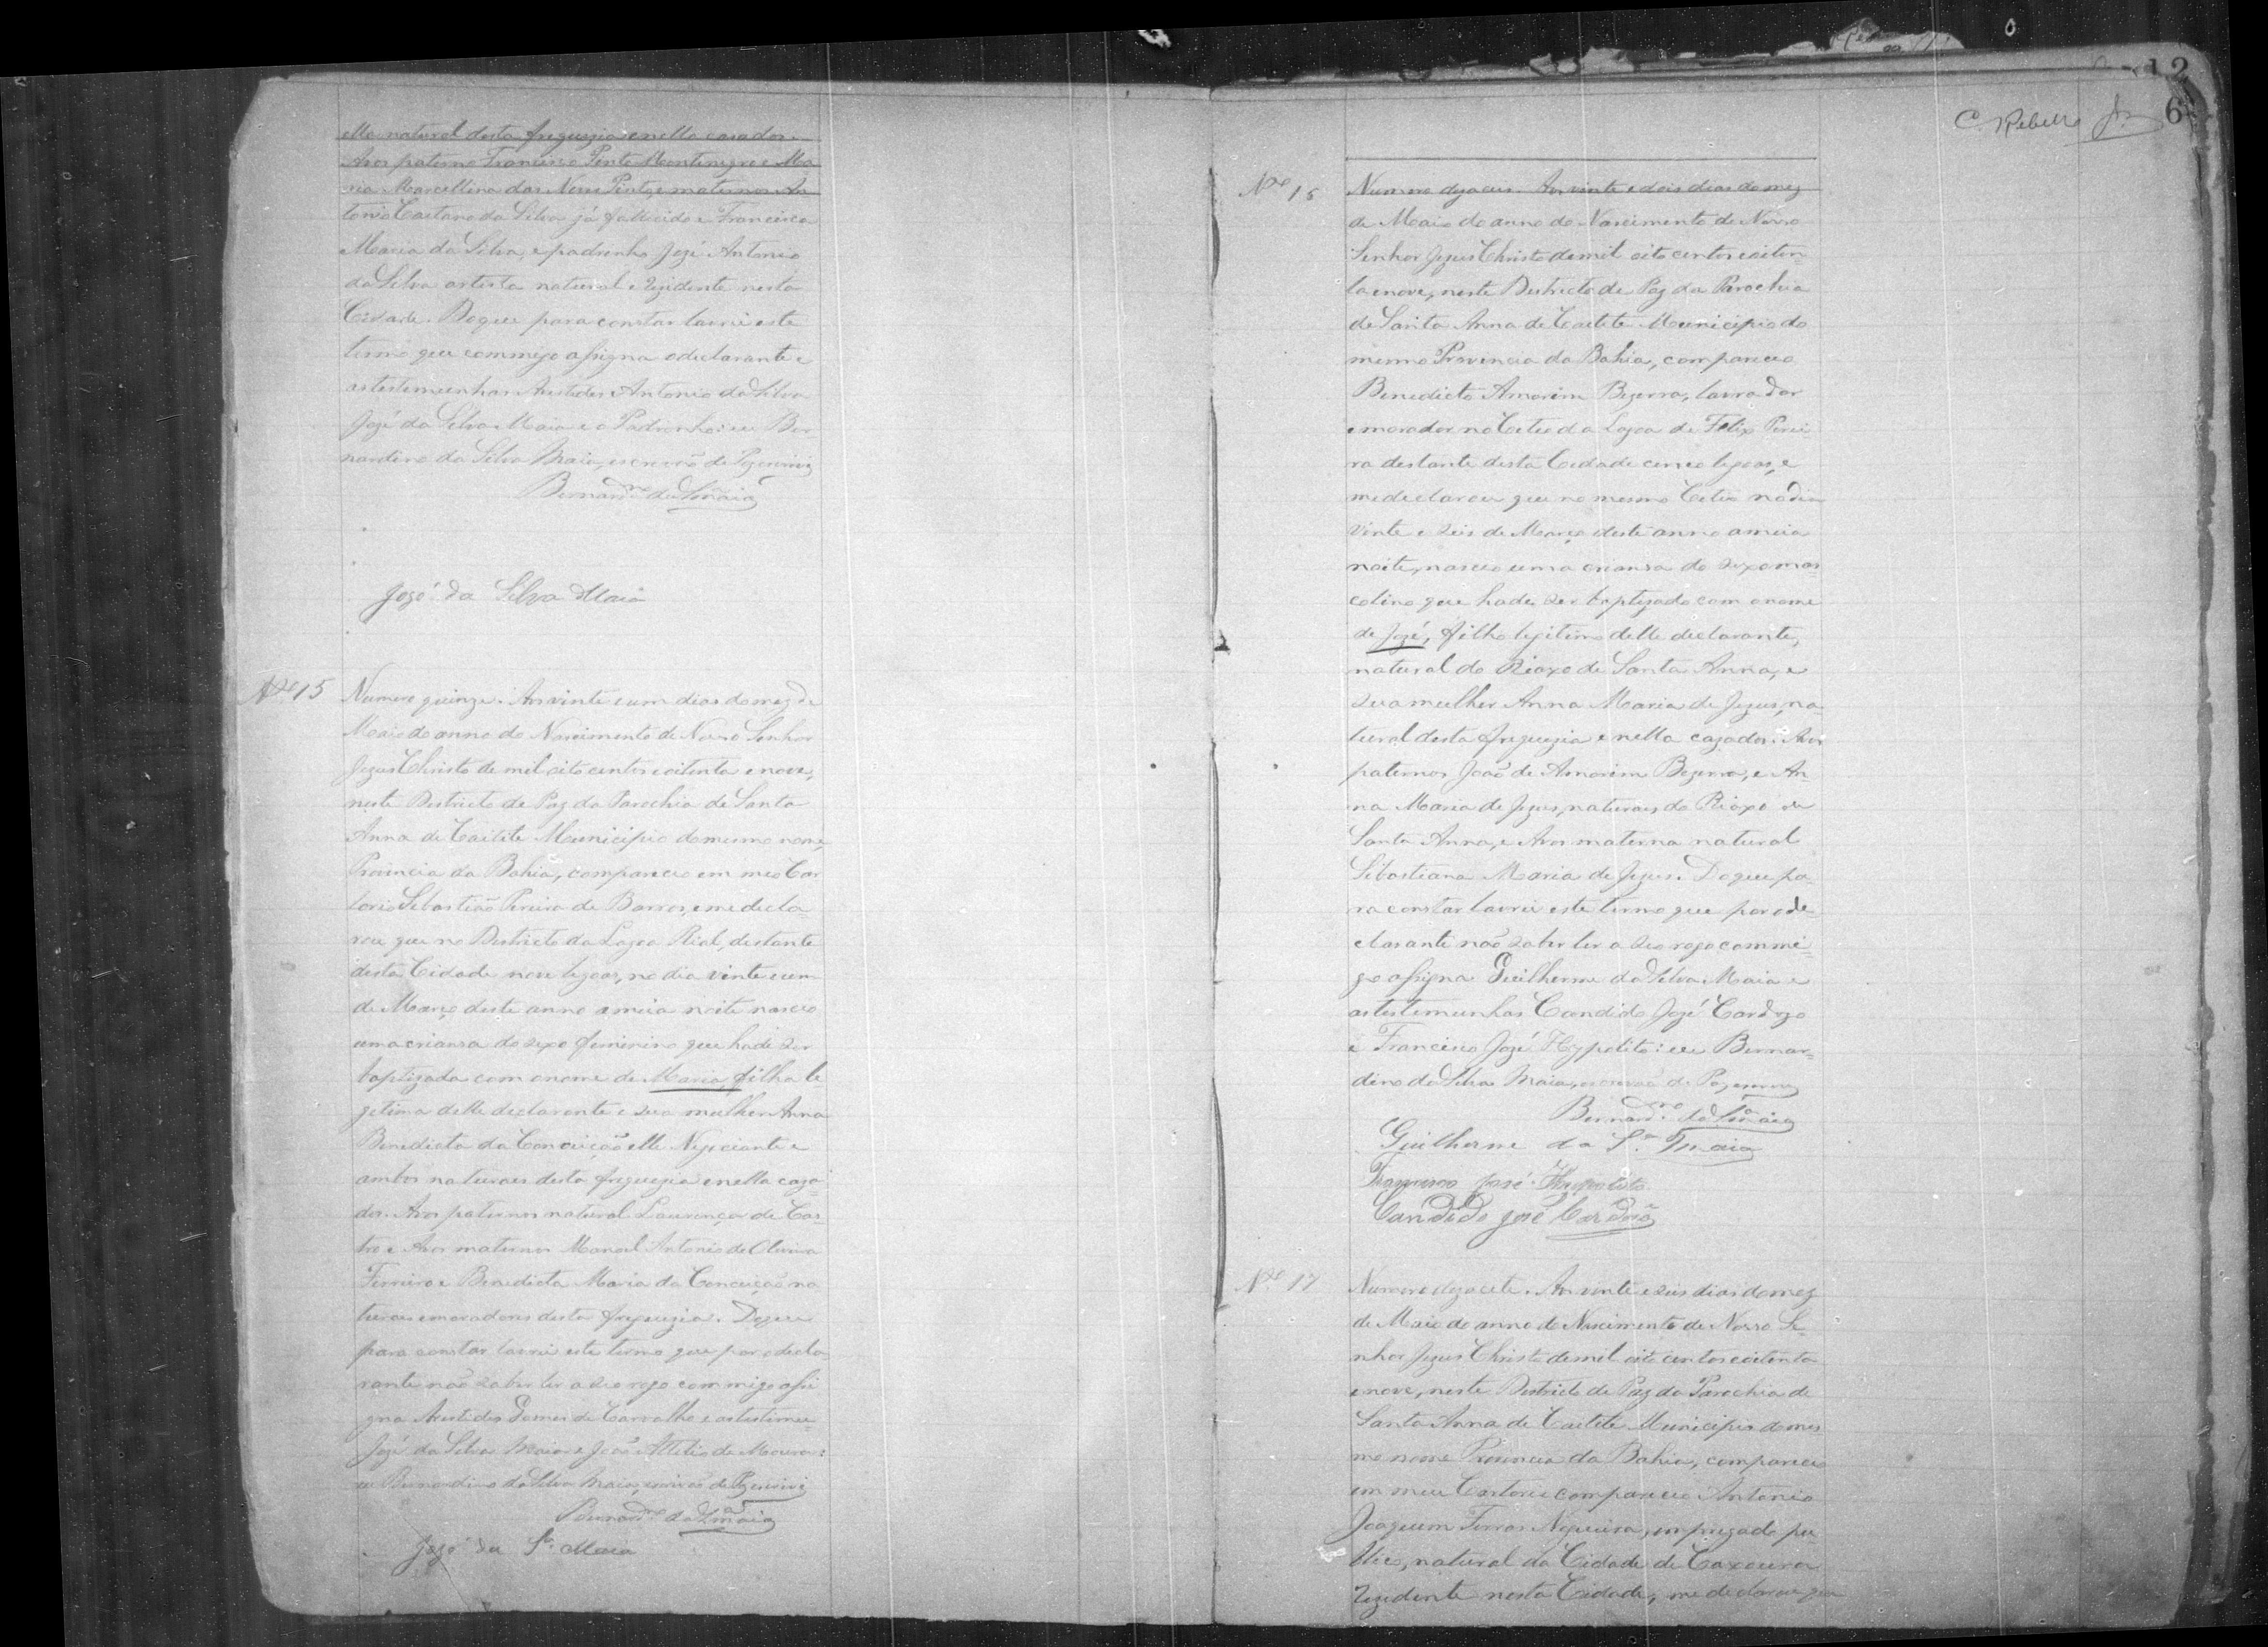 ella natural desta freguezia e nella casados.
Avos paterno Francisco Pinto Montenegro e Ma
ria Marcellina das Neves Pinto, e maternos An
tonio Caetano da Silva já fallecido e Francisca
Maria da Silva, e padrinho Jozé Antonio
da Silva artista natural e rezidente nesta
Cidade. Do que para constar lavrei este
termo que commigo assigna o declarante e
as testemunhas Aristides Antonio da Silva
Jozé da Silva Maia e o Padrinho: eu Ber
nardino da Silva Maia, escrivão de Paz escrevi
Bernardno da Sa Maia
Jozé da Silva Maia
No 15
Numero quinze. Aos vinte e um dias do mez de
Maio do anno do Nascimento de Nosso Senhor
Jezus Christo de mil oito centos e oitenta e nove,
neste Districto de Paz da Parochia de Santa
Anna de Caitite Municipio do mesmo nome,
Provincia da Bahia, compareceo em meo Car
torio Sebastião Pereira de Barros, e me decla
rou que no Districto da Lagoa Rial, distante
desta Cidade nove legoas, no dia vinte e um
de Março deste anno a meia noite nasceo
uma criansa do sexo feminino que hade ser
baptizada com o nome de Maria, filha le
getima delle declarante e sua mulher Anna
Benedicta da Conceição elle Negociante e
ambos naturaes desta freguezia e nella caza
dos. Avos paternos natural Lourença de Cas
tro e Avos maternos Manoel Antonio de Oliveira
Ferreira e Benedicta Maria da Conceição na
turaes e moradores desta freguezia. Do que
para constar lavrei este termo que por o decla
rante não saber ler a seo rogo commigo assi
gna Aristides Gomes de Carvalho e as testemu
Jozé da Silva Maia e João Attilio de Moura:
eu Bernardino da Silva Maia, escrivão de Paz escrevi
Bernardno da Sa Maia
Jozé da Sa Maia
12
6
C. Rebello Jr
No 16
Numero dezaceis. Aos vinte e dois dias do mez
de Maio do anno do Nascimento de Nosso
Senhor Jezus Christo de mil oito centos e oiten
ta e nove, neste Districto de Paz da Parochia
de Santa Anna de Caitite Municipio do
mesmo Provincia da Bahia, compareceo
Benedicto Amorim Bezerra, lavrador
e morador no Citio da Lagoa de Felix Perei
ra destante desta Cidade cinco legoas, e
me declarou que no mesmo Citio no dia
vinte e seis de Março deste anno a meia
noite, nasceo uma criansa do sexo mas
colino que hade ser baptizado com o nome
de Jozé, filho legitimo delle declarante,
natural do Riaxo de Santa Anna, e
sua mulher Anna Maria de Jezus, na
tural desta freguezia e nella cazados. Avos
paternos João de Amorim Bezerra, e An
na Maria de Jezus, naturaes do Riaxo de
Santa Anna, e Avos materna natural
Sebastiana Maria de Jezus. Do que pa
ra constar lavrei este termo que por o de
clarante não saber ler a seo rogo commi
go assigna Guilherme da Silva Maia e
as testemunhas Candido Jozé Cardozo
e Francisco Jozé Hypolito: eu Bernar
dino da Silva Maia, escrivão de Paz escrevi
Bernardno da Sa Maia
Guilherme da Sa Maia
Francisco José Hypolito
Candido José Cardoso
No 17
Numero dezacete. Aos vinte e seis dias do mez
de Maio do anno do Nascimento de Nosso Se
nhor Jezus Christo de mil oito centos e oitenta
e nove, neste Districto de Paz da Parochia de
Santa Anna de Caitite Municipio do mes
mo nome Provincia da Bahia, compareceo
em meu Cartorio compareceo Antonio
Joaquim Ferras Nogueira, empregado pu
blico, natural da Cidade de Caxoeira
rezidente nesta Cidade, me declarou que